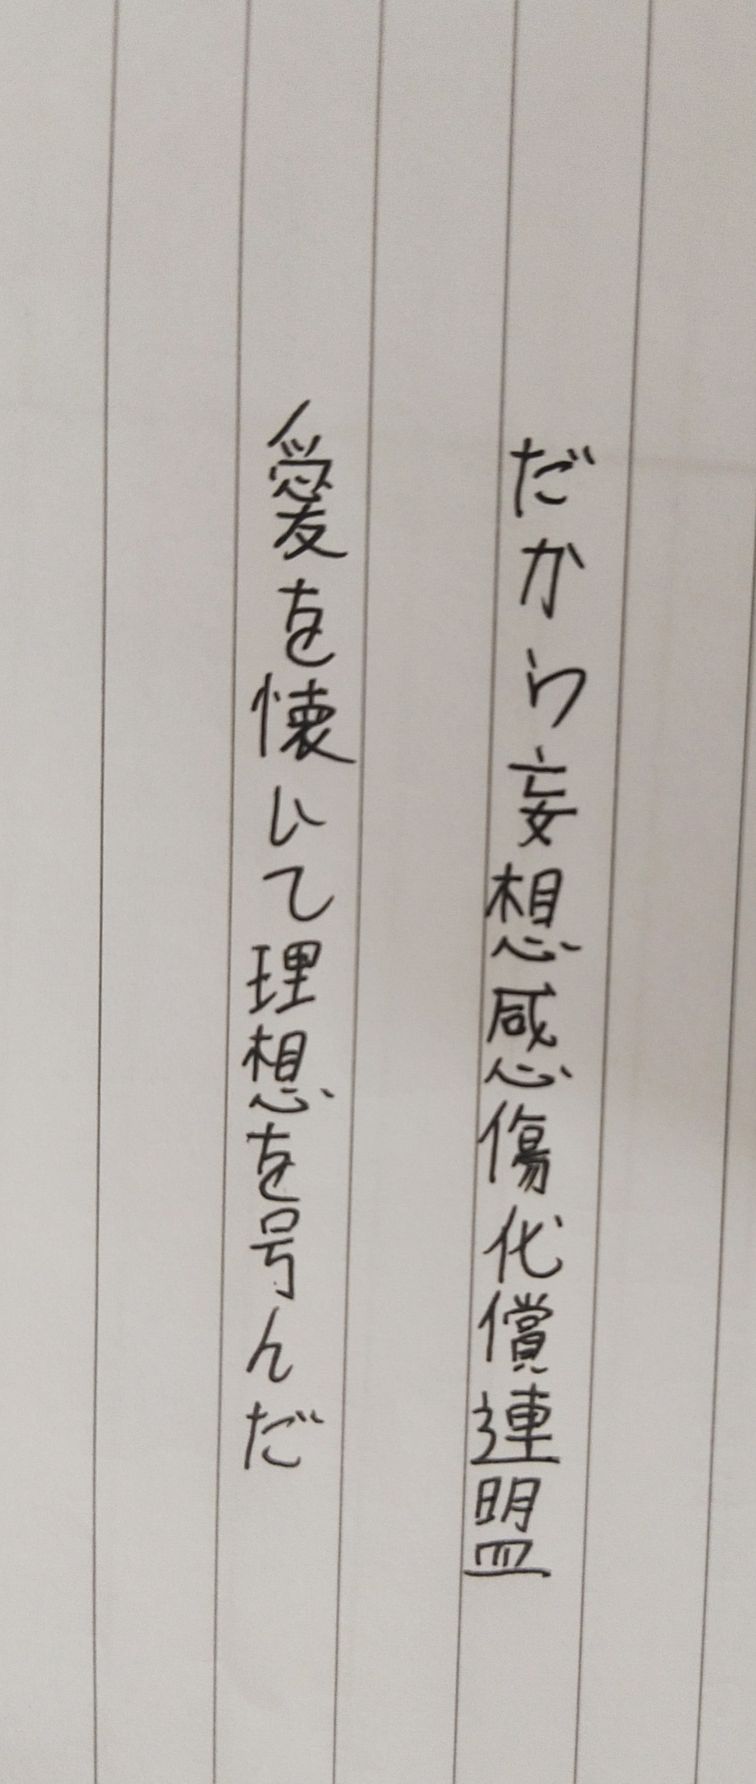 だから妄想感傷化償連盟
愛を懐いて理想を号んだ